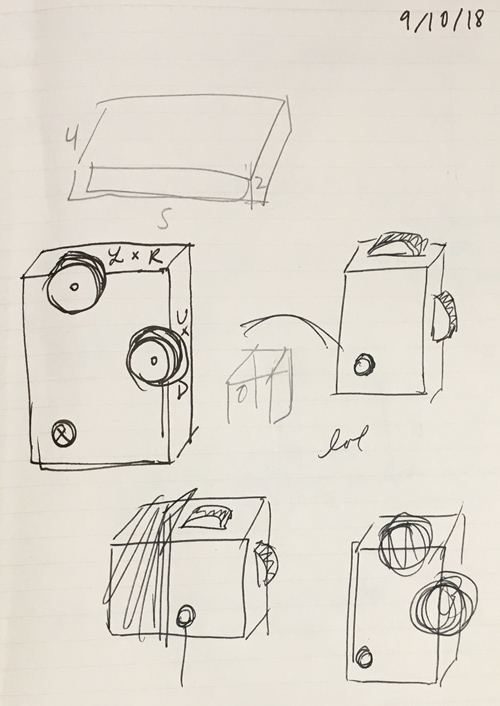 9/10/18
4
2
5
L x R
U
x
D
R
lol